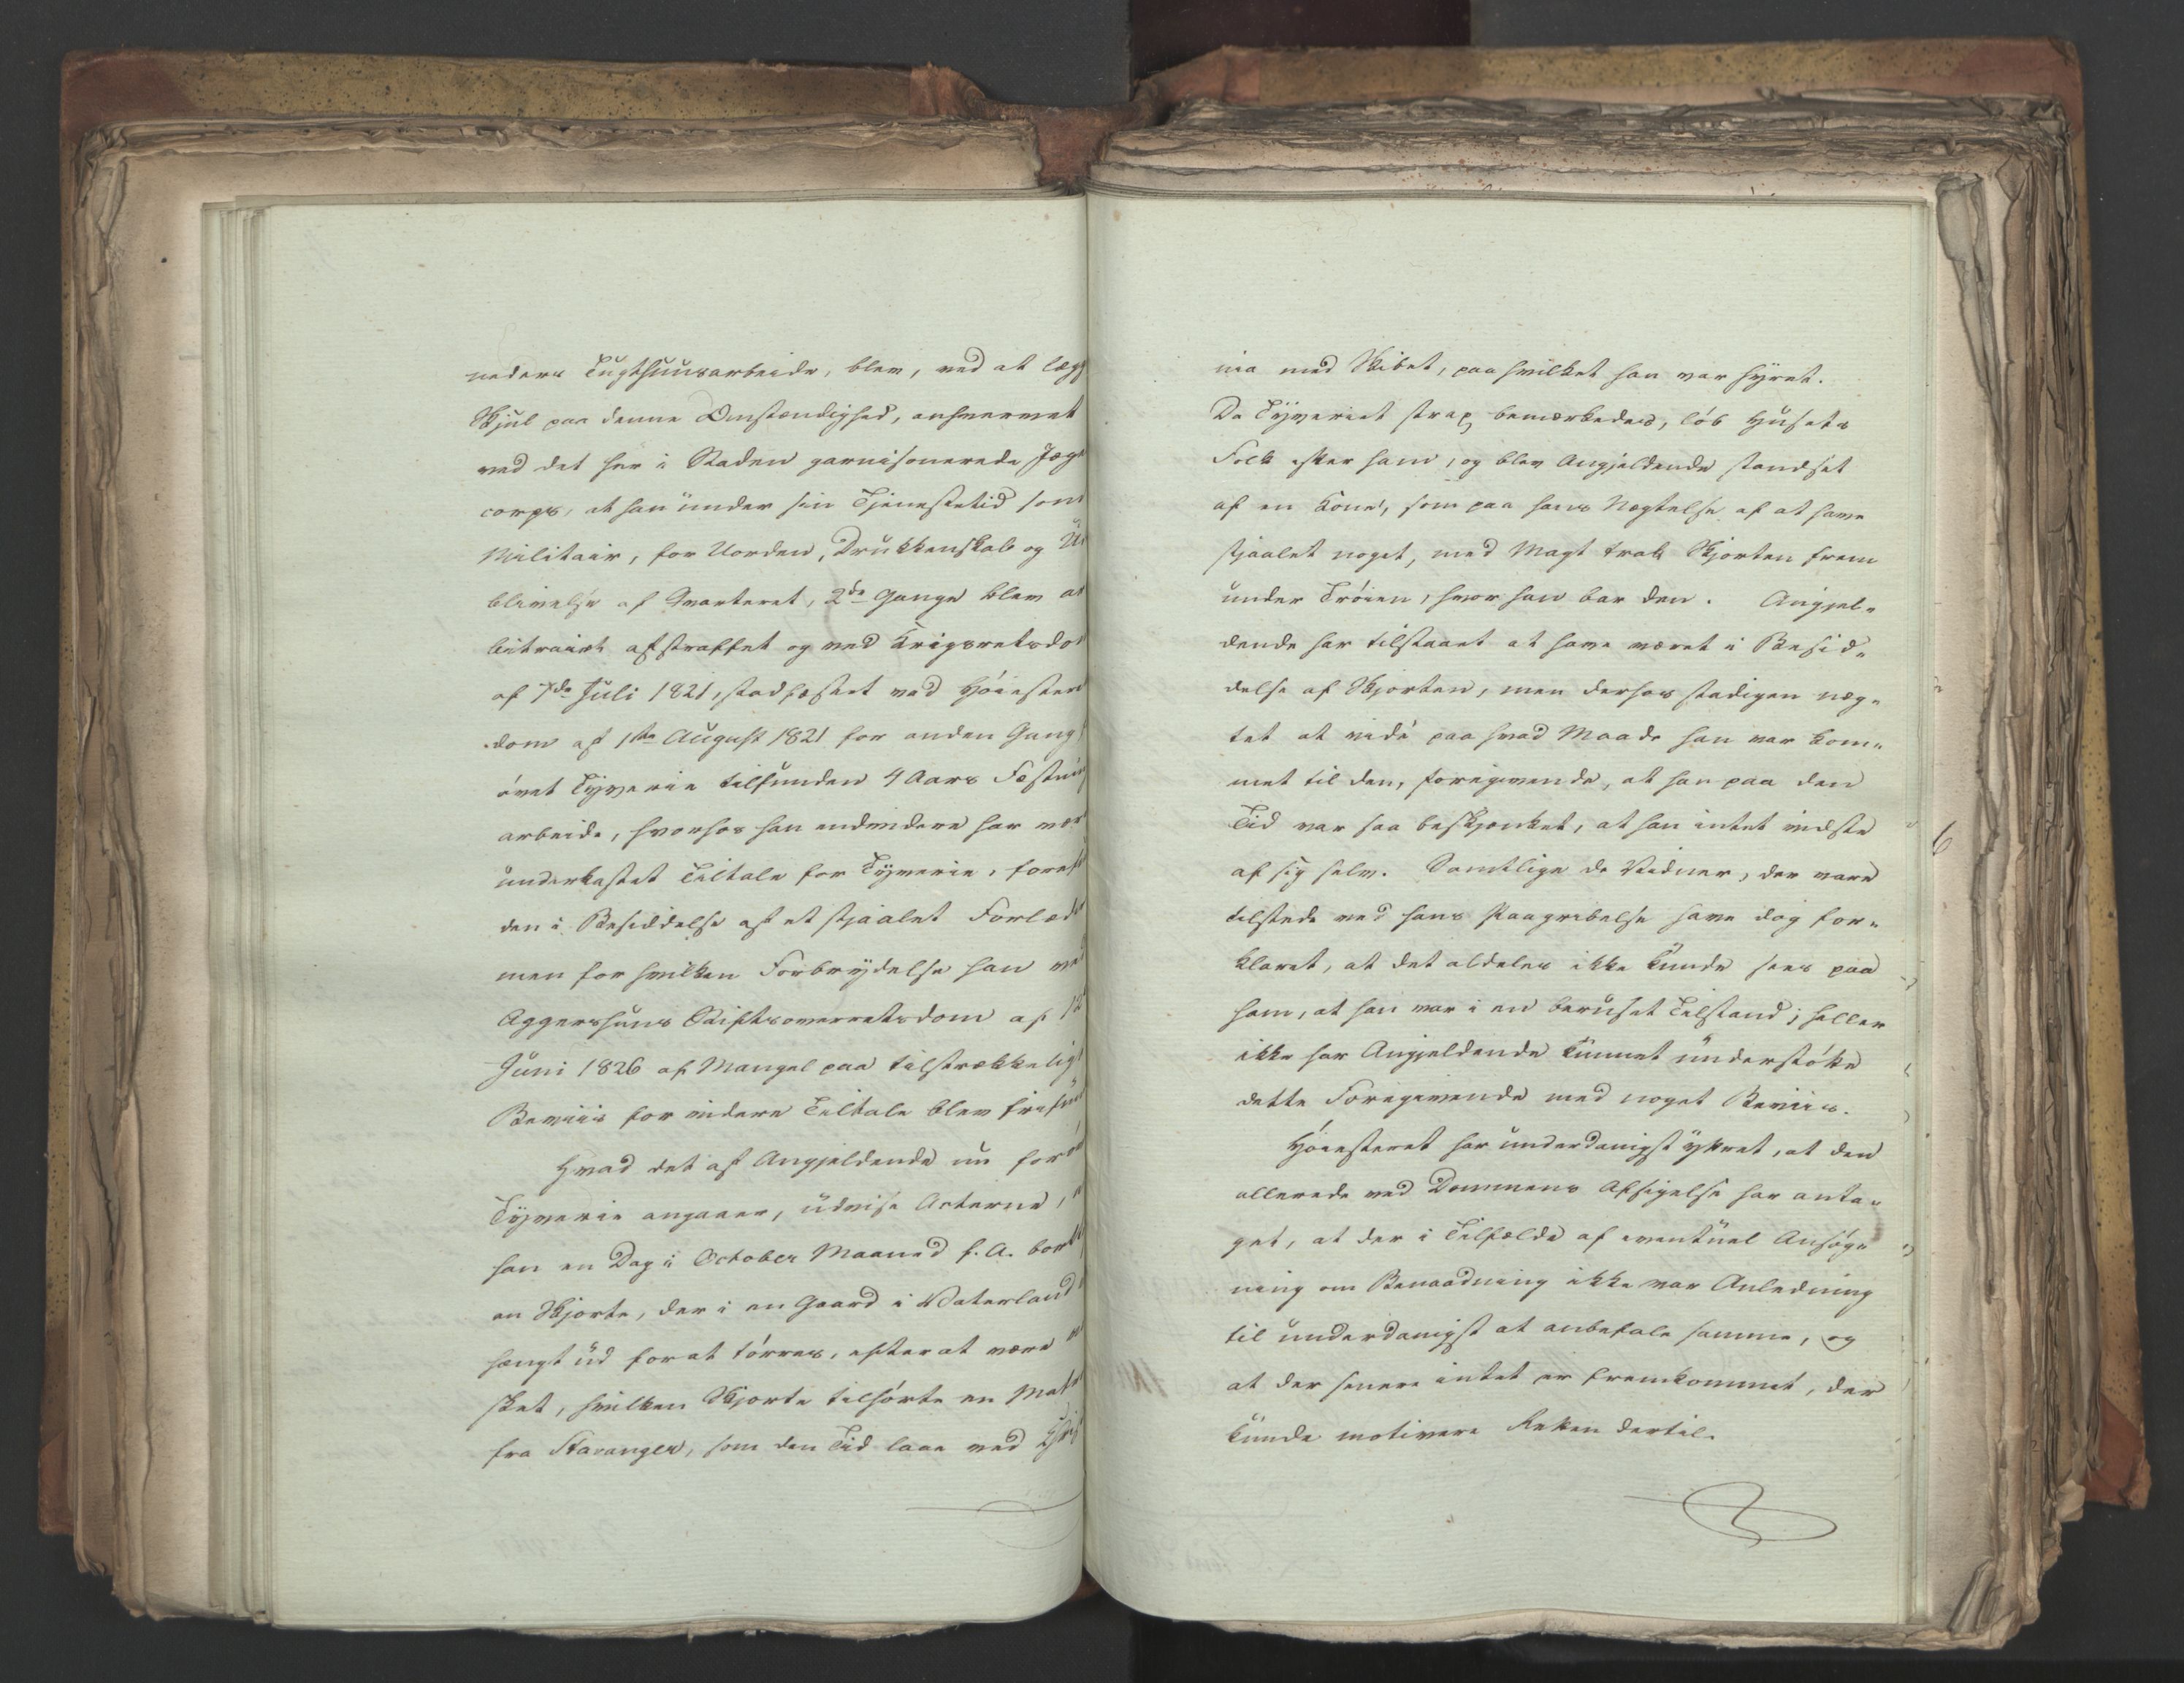 neders Tugthuusarbeide, blev, ved at lægg
Skjul paa denne Omstændighed, anhvervet
ved det her i Staden garnisonerede Jæge
corps, at han under sin Tjenestetid som
Militair, for Uorden, Drukkenskab og Ud
blivelse af Qvarteret, 2de Gange blev ar
bitrairt afstraffet og ved Krigsretsdo
af 7de Juli 1821, stadfæstet ved Høiester
dom af 1ste August 1821 for anden Gang
øvet Tyverie tilfunden 4 Aars Fæstnin
arbeide, hvorhos han endvidere har vær
underkastet Tiltale for Tyverie, forefu
den i Besiddelse af et stjaalet Forlæder
men for hvilken Forbrydelse han ved
Aggershuus Stiftsoverretsdom af 12
Juni 1826 af Mangel paa tilstrækkeligt
Beviis for videre Tiltale blev frifun
Hvad det af Angjeldende nu forøv
Tyverie angaaer, udvise Acterne, a
han en Dag i October Maaned f. A. bort
en Skjorte, der i en Gaard i Vaterland
hængt ud for at tørres, efter at være va
sket, hvilken Skjorte tilhørte en Matr
fra Stavanger, som den Tid laae ved Chri
nia med Skibet, paa hvilket han var hyret.
Da Tyveriet strax bemærkedes, løb Husets
Folk efter ham, og blev Angjeldende standset
af en Kone, som paa hans Nægtelse af at have
stjaalet noget, med Magt trak Skjorten frem
under Trøien, hvor han bar den. Angjel„
dende har tilstaaet at have været i Besid„
delse af Skjorten, men derhos stadigen næg„
tet at vide paa hvad Maade han var kom„
met til den, foregivende, at han paa den
Tid var saa beskjænket, at han intet vidste
af sig selv. Samtlige de Vidner, der vare
tilstede ved hans Paagribelse have dog for„
klaret, at det aldeles ikke kunde sees paa
ham, at han var i en beruset Tilstand; heller
ikke har Angjeldende kunnet understøtte
dette Foregivende med noget Beviis.
Høiesteret har underdanigst yttret, at den
allerede ved Dommens Afsigelse har anta„
get, at der i Tilfælde af eventuel Ansøg„
ning om Benaadning ikke var Anledning
til underdanigst at anbefale samme, og
at der senere intet er fremkommet, der
kunde motivere Retten dertil.